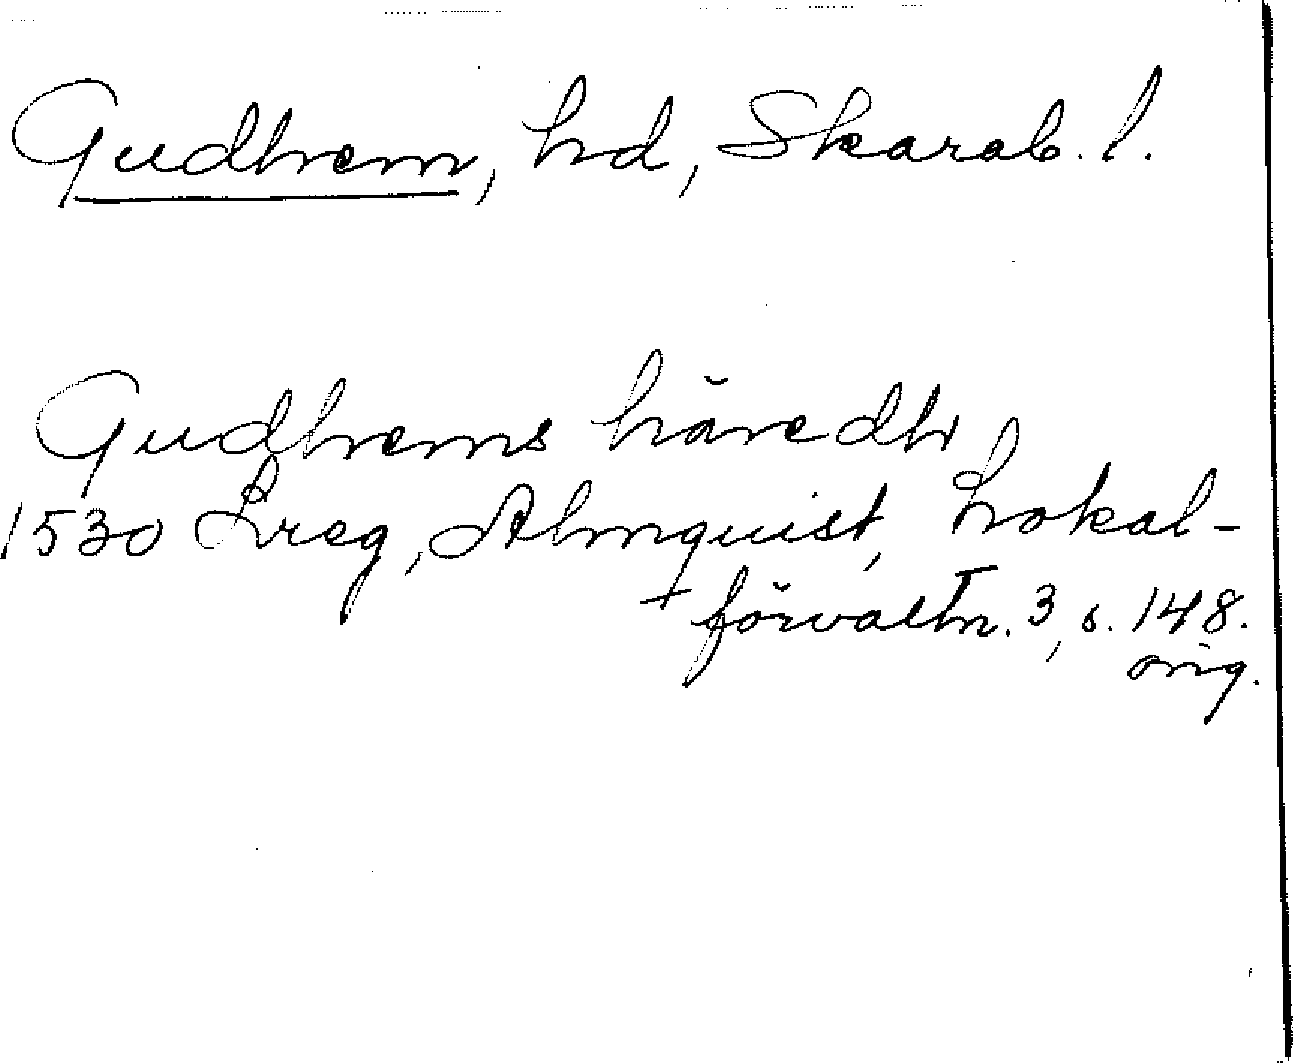 Gudhem, hd, Skarab. l.
Gudhems häredh
1530 Lreg, Almquist, Lokal-
förvaltn. 3, s. 148.
orig.